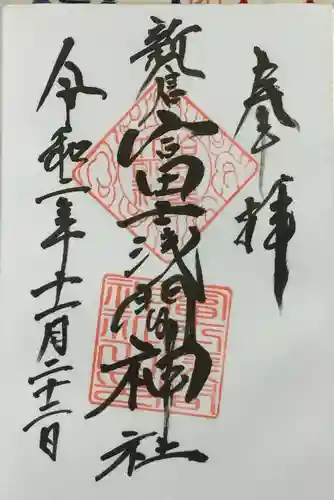 奉拝
新倉富士浅間神社
令和二年十一月二十三日